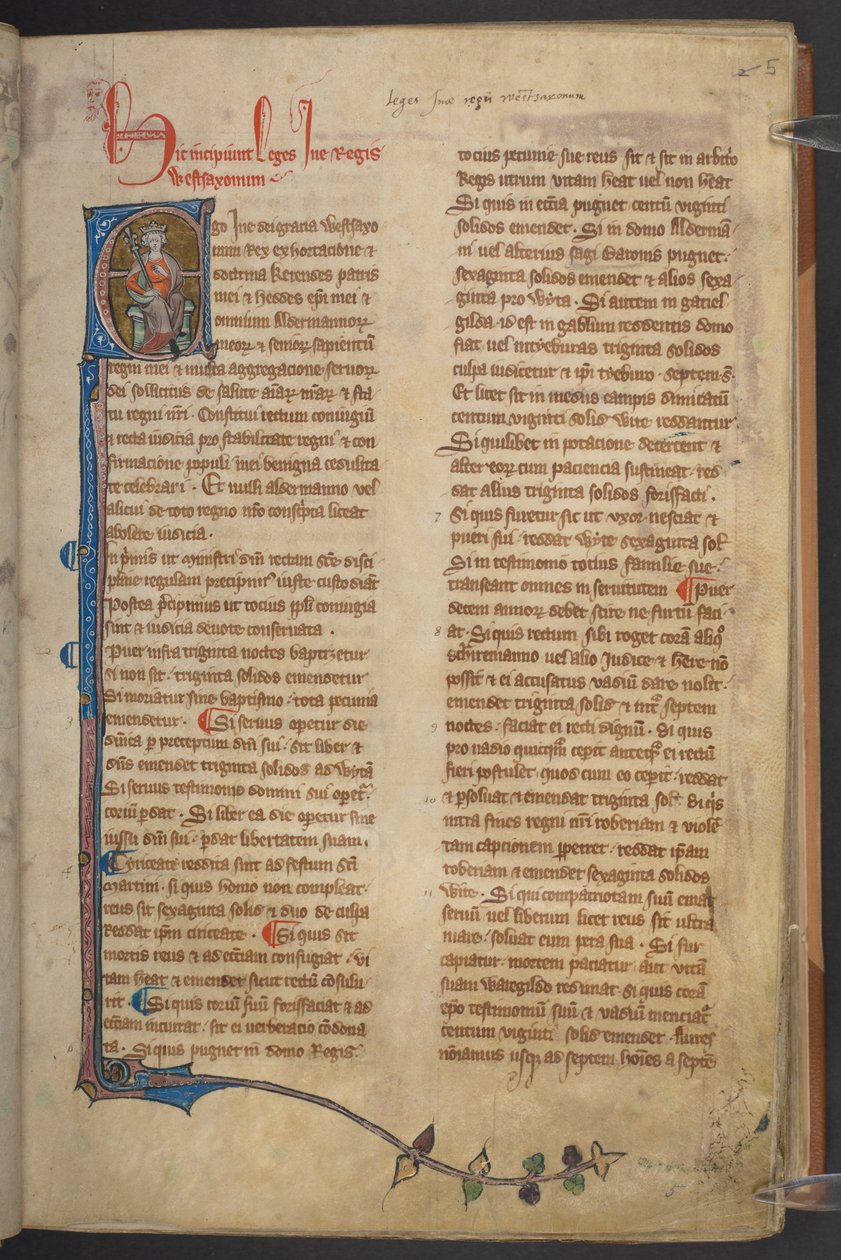 leges Inæ regū westsaxonum
5
Hic incipiunt leges Ine Regis
westsaxonum
Ego Ine dei gracia westsaxo
num Rex exhortacione &
doctrina Kerendes patris
mei & Heddes ep̄i mei &
omnium Aldermannoꝝ
meoꝝ & senioꝝ sapientū
regni mei & multa aggregacione seruoꝝ
dei sollicitus de salute aīaꝝ nr̄aꝝ & sta
tu regni nr̄i. Constitui rectum coniugiū
& recta iudicia pro stabilitate regni & con
firmacione populi mei benigna
te celebrari. Et nulli aldermanno vel
alicui de toto regno nr̄o conscripta liceat
abolere iudicia.
In p̄mis ut ministri dn̄i rectam sc̄e disci
pline regulam iuste custodiāt
Postea p̄cipimus ut tocius pp̄li coniugia
sint & iudicia deuote conseruata.
Puer infra triginta noctes baptizetur
si non sit. triginta solidos emendetur
Si moriatur sine baptismo. tota pecunia
emendetur. Si seruus operetur die
dn̄ica per preceptum dn̄i sui. sit liber &
dn̄s emendet triginta solidos ad wytā
Si seruus testimonio domini sui opet͛.
coriū p̄dat. Si liber ea die operetur sine
iussu dn̄i sui. p̄dat libertatem suam.
Cyriceate reddita sint ad festum sc̄i
martini. si quis homo non compleat.
reus sit sexaginta solid & duo de culpa
Reddat ip̄m ciriceate. Si quis sit
mortis reus & ad ecc̄iam confugiat. vi
tam h̄eat & emendet sicut rectū
rit. Si quis coriū suū forisfaciat & ad
ecc̄iam incurrat. sit ei uerberacio cōdona
ta. Si quis pugnet in domo Regis.
tocius pecunie sue reus sit & sit in arbit'o
Regis utrum vitam h̄eat uel non h̄eat
Si quis in ecc̄ia pugnet centū viginti
solidos emendet. Si in domo Alderma͞
ni vel alterius sagi Baronis pugnet.
sexaginta solidos emendet & alios sexa
ginta pro wyta. Si autem in gatiel
gilda id est in gablum reddentis domo
fiat vel triginta solidos
culpa iudicetur & ip̄i septem s̄.
Et licet sit in medus campis dimicatū
centum viginti solid wite reddantur.
Si quilibet in potacione decertent &
alter eoꝝ cum paciencia sustineat. red
dat alius triginta solidos forisfacti.
7 Si quis furetur sit ut vxor nesciat &
pueri sui. reddat wyte sexaginta sol
Si in testimonio tocius familie sue.
transeant omnes in seruitutem Puer
decem annoꝝ debet scire ne furtū faci
8 at. Si quis rectum sibi roget corā aliq̊
schiremanno vel alio Iudice & h̄ere nō
possit & ei accusatus vadiū dare nolit.
emendet triginta solid & infra septem
9 noctes. faciat ei recti dignū. Si quis
pro uadio cepit anteq̄ ei rectū
fieri postulet. quod cum eo cepit. reddat
10 & p̄soluat & emendat triginta sol. Si q̄s
intra fines regni nr̄i roberiam & violē
tam captionem perpetret. reddat ip̄am
roberiam & emendet sexaginta solidos
11 wite. Si qui compatriotam suū emat
seruū vel liberum licet reus sit ultra
mare. soluat eum pera sua. Si fur
capiatur. mortem paciatur aut vitā
suam waregildo redimat. si quis corā
ep̄o testimoniū suū & vadiū menciat͛
centum viginti solid emendet. fures
nōiamus usq; ad septem hōies a septē
5